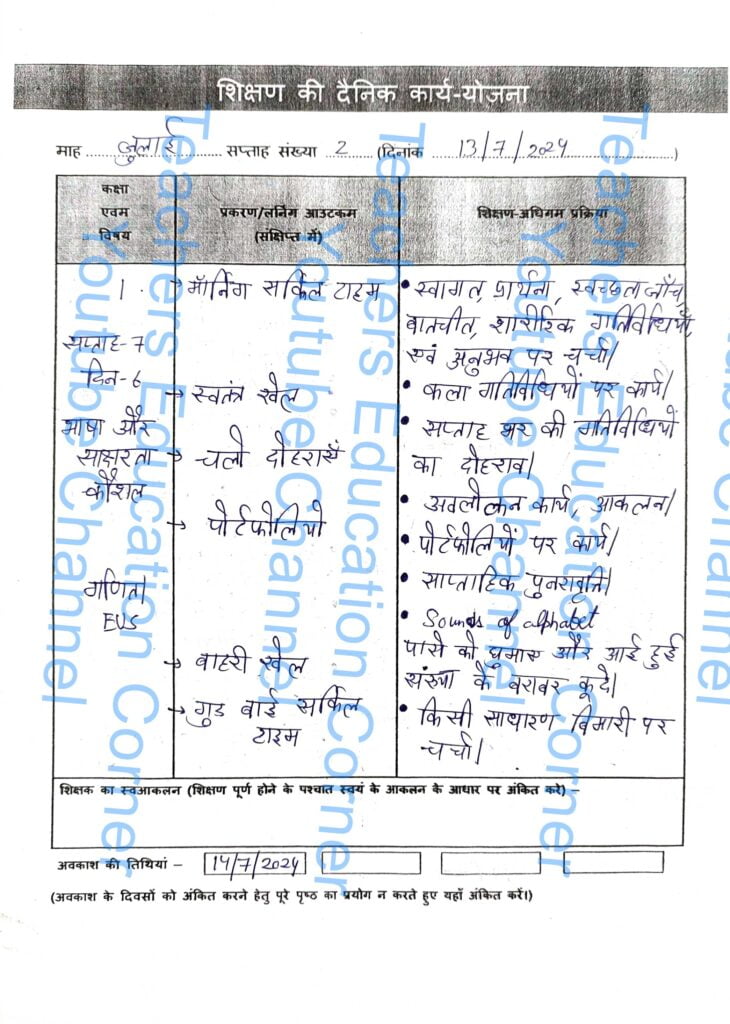 शिक्षण की दैनिक कार्य-योजना
माह ....जुलाई.... सप्ताह संख्या ..2.. (दिनांक ..13/7/2024..)
कक्षा
एवम
विषय
प्रकरण/लर्निंग आउटकम
(संक्षिप्त में)
शिक्षण-अधिगम प्रक्रिया
1
सप्ताह-7
दिन-6
भाषा और
साक्षरता
कौशल
गणित
EVS
→ मॉर्निंग सर्किल टाइम
→ स्वतंत्र खेल
→ चलो दोहराएँ
→ पोर्टफोलियो
→ बाहरी खेल
→ गुड बाई सर्किल
टाइम
• स्वागत, प्रार्थना, स्वच्छता जाँच,
बातचीत, शारीरिक गतिविधियाँ,
एवं अनुभव पर चर्चा।
• कला गतिविधियों पर कार्य।
• सप्ताह भर की गतिविधियों
का दोहराव।
• अवलोकन कार्य, आकलन।
• पोर्टफोलियों पर कार्य।
• साप्ताहिक पुनरावृति।
• Sounds of alphabet
पासे को घुमाए और आई हुई
संख्या के बराबर कूदे।
• किसी साधारण बिमारी पर
चर्चा।
शिक्षक का स्वआकलन (शिक्षण पूर्ण होने के पश्चात स्वयं के आकलन के आधार पर अंकित करे) –
अवकाश की तिथियां – 14/7/2024
(अवकाश के दिवसों को अंकित करने हेतु पूरे पृष्ठ का प्रयोग न करते हुए यहाँ अंकित करें।)
Teachers Education Corner
Youtube Channel
Teachers Education Corner
Youtube Channel
Teachers Education Corner
Youtube Channel